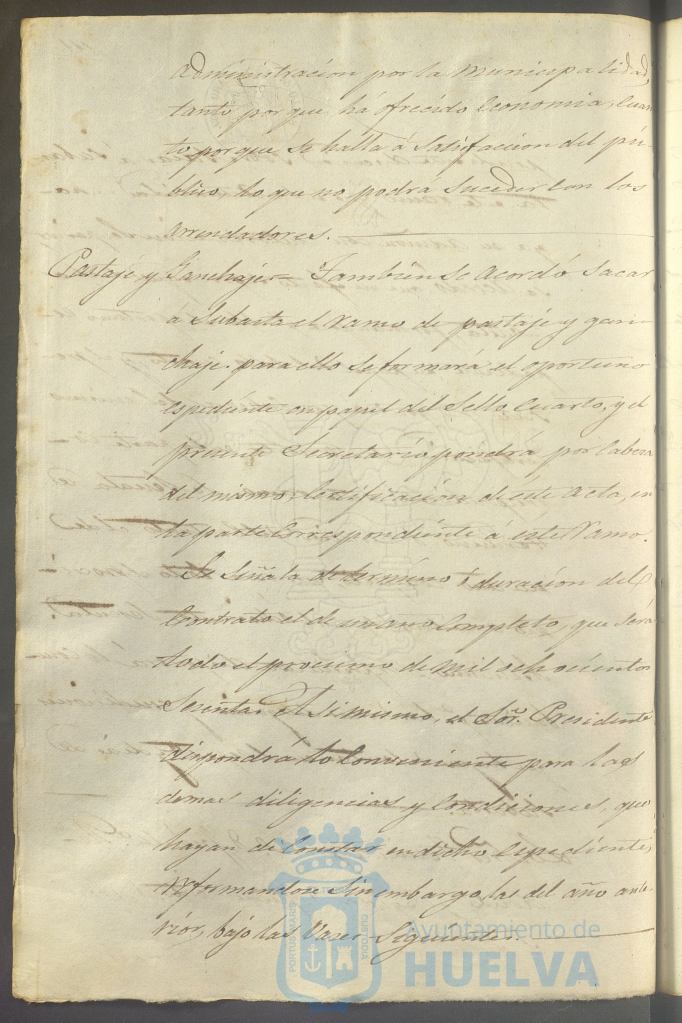 administracion por la Municipalidad,
tanto por que há ofrecido Economia, cuan-
to porque se halla á Satisfaccion del pú-
blico, lo que no podrá Suceder con los
arrendadores.
Pastaje y Ganchaje = Tambien se Acordó Sacar
á Subasta el ramo de pastaje y gan-
chaje. para ello se formará el oportuno
espediente en papel del Sello cuarto, y el
presente Secretario pondrá por Cabeza
del mismo, Certificacion de éste Acta, en
la parte Correspondiente á este ramo.
Se Señala de termino ó duracion del
Contrato el de un año Completo, que será
todo el procsimo de mil ochocientos
Sesenta. Asi mismo, el Sor. Presidente
dispondrá lo Conveniente para las
demas diligencias y Condiciones, que
hayan de Constar en dicho Espediente,
reformandose Sin embargo, las del año ante-
rior, bajo las Vases Siguientes.
Ayuntamiento de
HUELVA